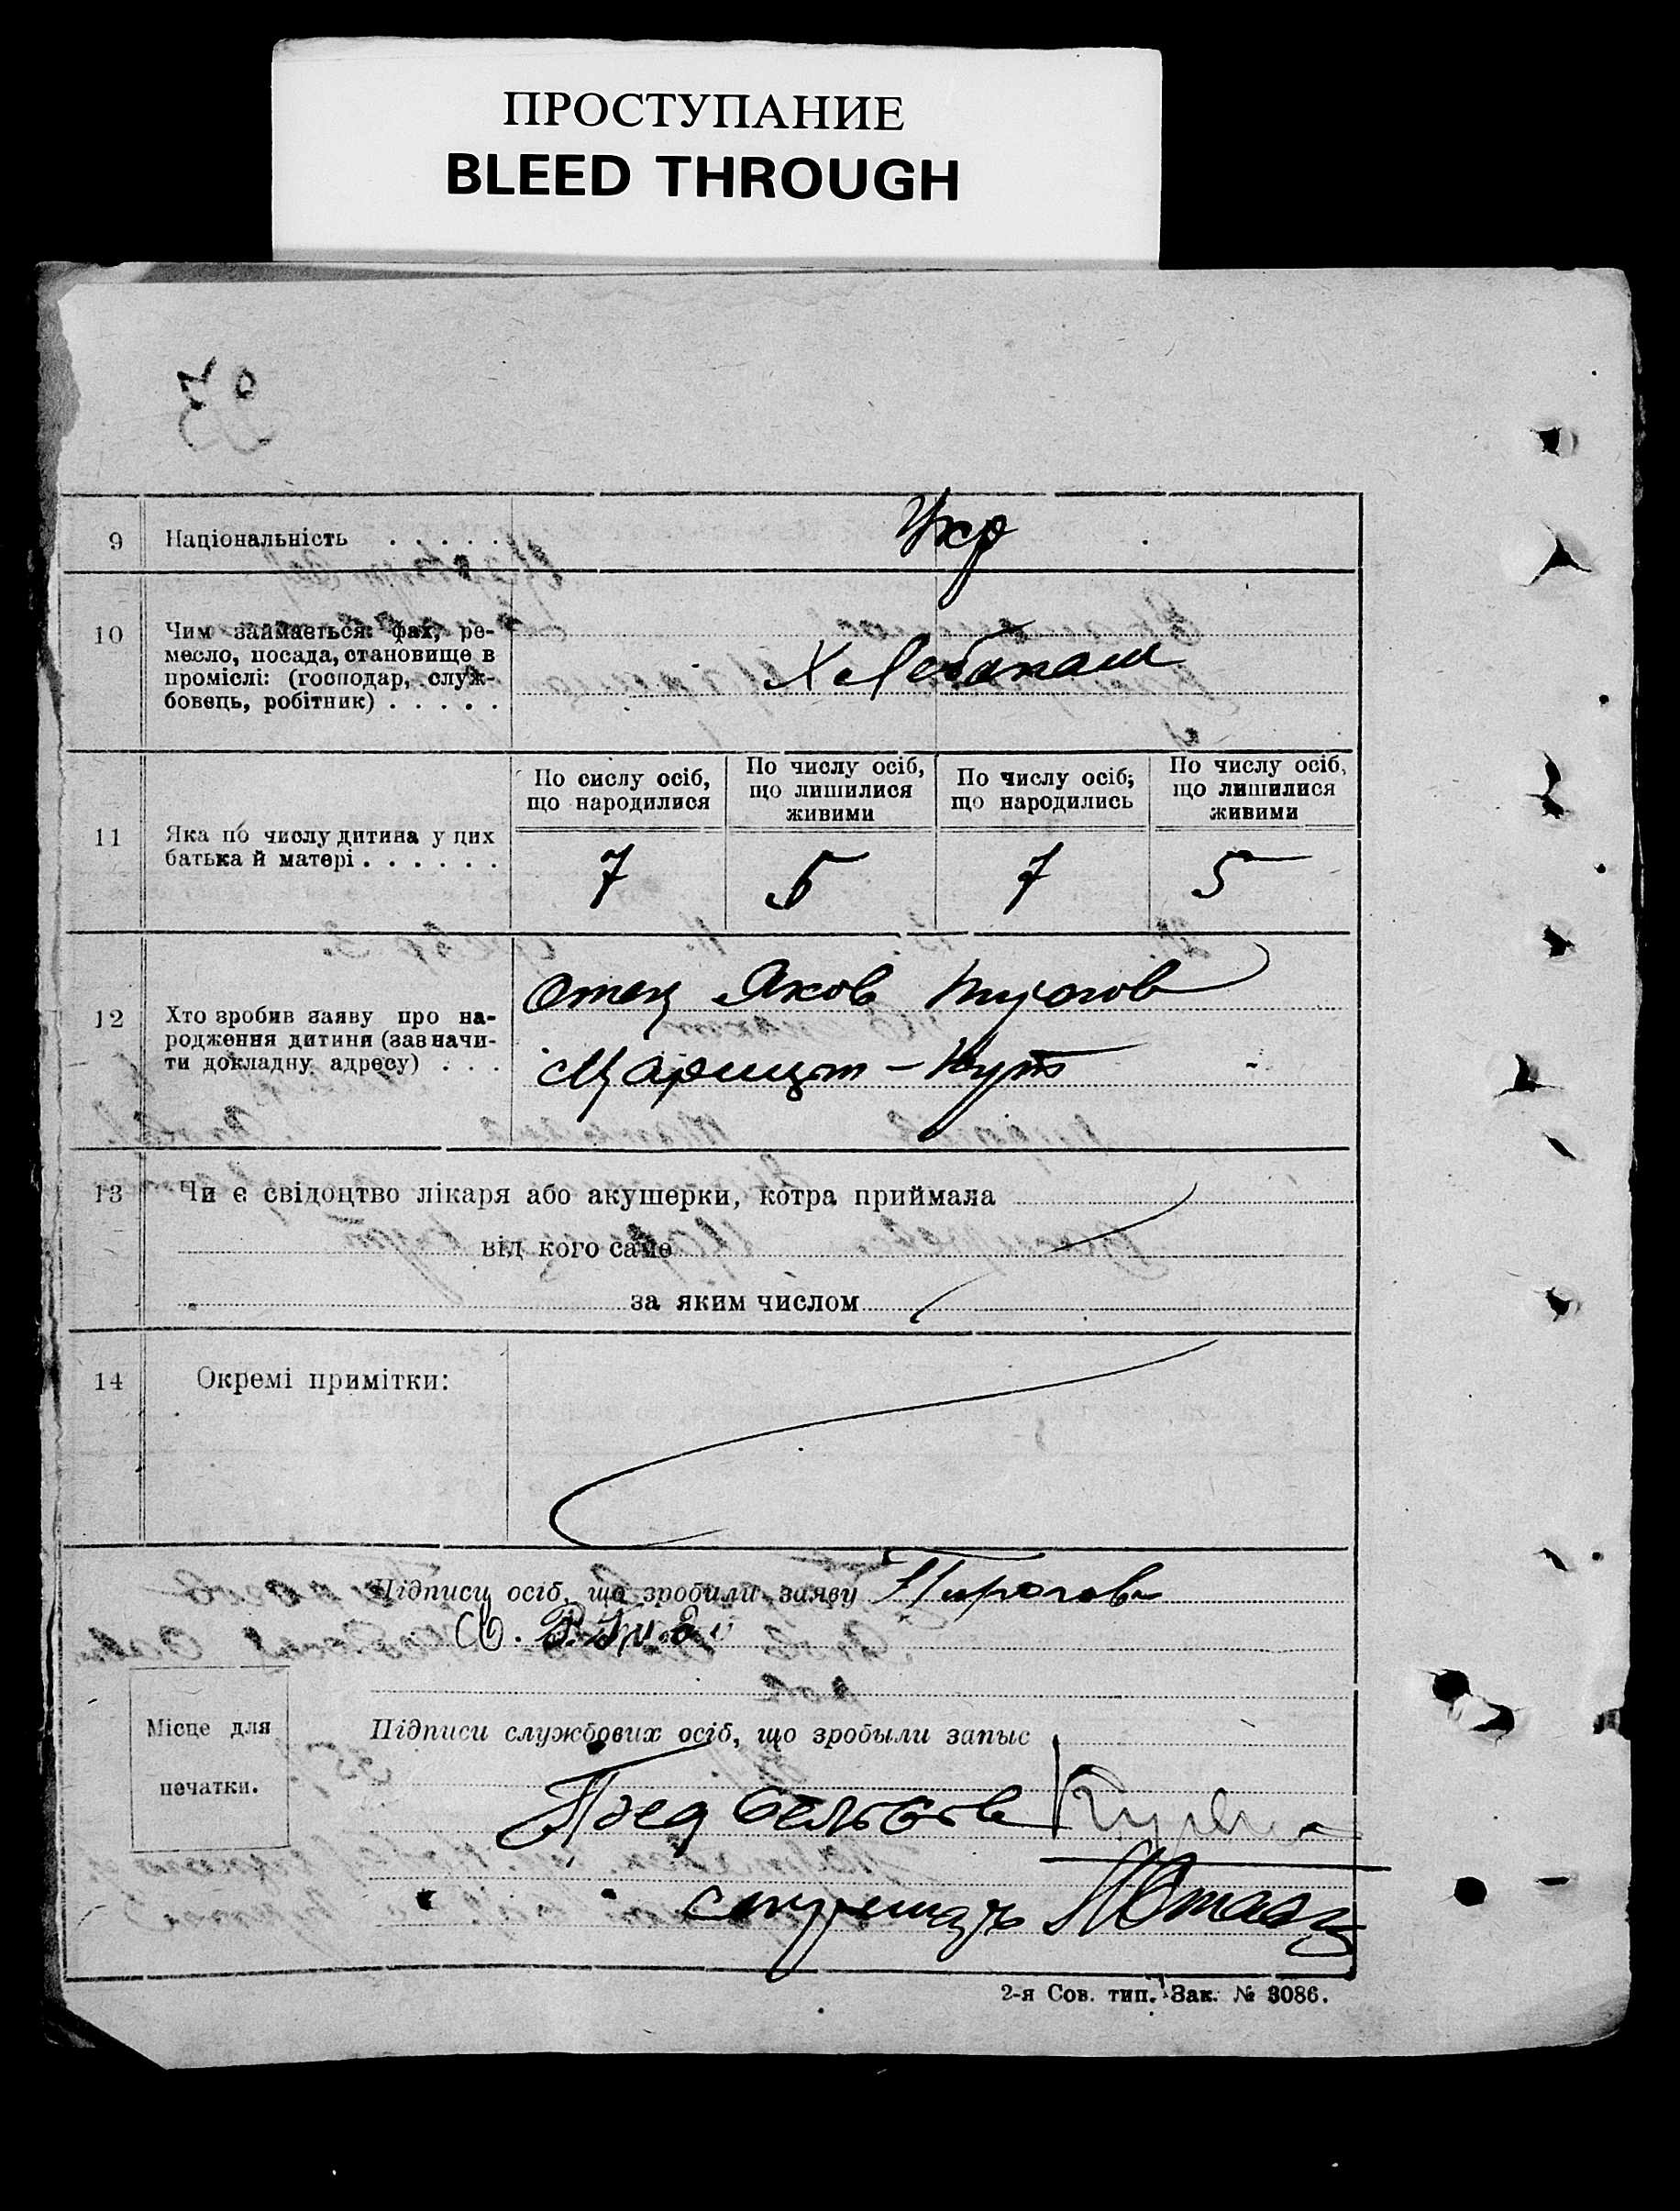 ПРОСТУПАНИЕ
BLEED THROUGH
9 Національність . . . . . Укр
10 Чим займається: фах, ре-
месло, посада, становище в
проміслі: (господар, служ-
бовець, робітник) . . . . .
Хлебапаш
По сислу осіб,
що народилися
По числу осіб,
що лишилися
живими
По числу осіб,
що народились
По числу осіб,
що лишилися
живими
11 Яка по числу дитина у цих
батька й матері . . . . . .
7 5 7 5
12 Хто зробив заяву про на-
родження дитини (зазначи-
ти докладну адресу) . . .
Отец Яков Пирогов
Марицын-Кут
13 Чи є свідоцтво лікаря або акушерки, котра приймала
від кого саме
за яким числом
14 Окремі примітки:
Підписи осіб, що зробили заяву Пирогов
Місце для
печатки.
Підписи службових осіб, що зробыли запыс
Пред
секретарь
2-я Сов. тип. Зак. № 3086.